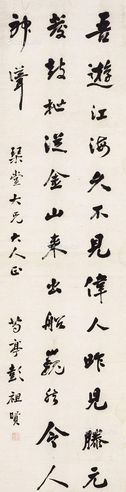 吾遊江海久不見偉人昨見滕元
發鼓枻從金山來出船巍然令人
神聳
琹堂大兄大人正
芍亭彭祖賢